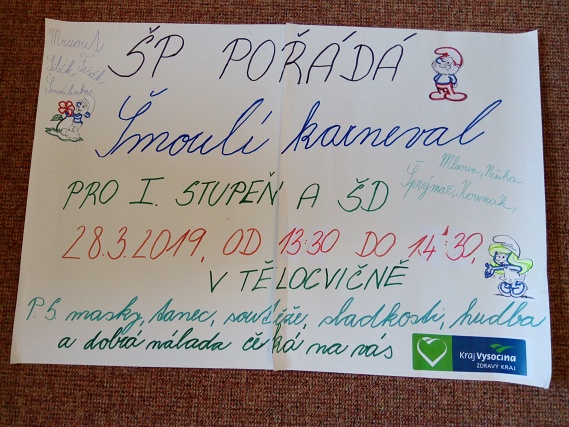 Mrzout
Silák, Fešák
Šmoulinka
ŠP POŘÁDÁ
Šmoulí karneval
Mlsoun, Neška
Šprýmař, Koumák,
PRO I. STUPEŇ A ŠD
28.3.2019, OD 13:30 DO 14:30,
V TĚLOCVIČNĚ
P.S. masky, tanec, soutěže, sladkosti, hudba
a dobrá nálada čeká na vás
Kraj Vysočina
ZDRAVÝ KRAJ